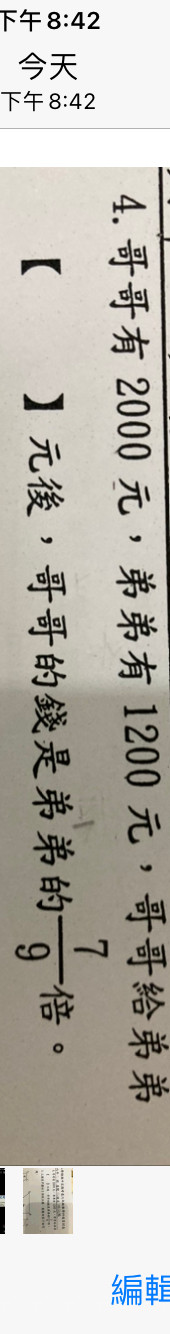 下午8:42
今天
下午8:42
4. 哥哥有2000元，弟弟有1200元，哥哥給弟弟
【 】元後，哥哥的錢是弟弟的7/9倍。
編輯